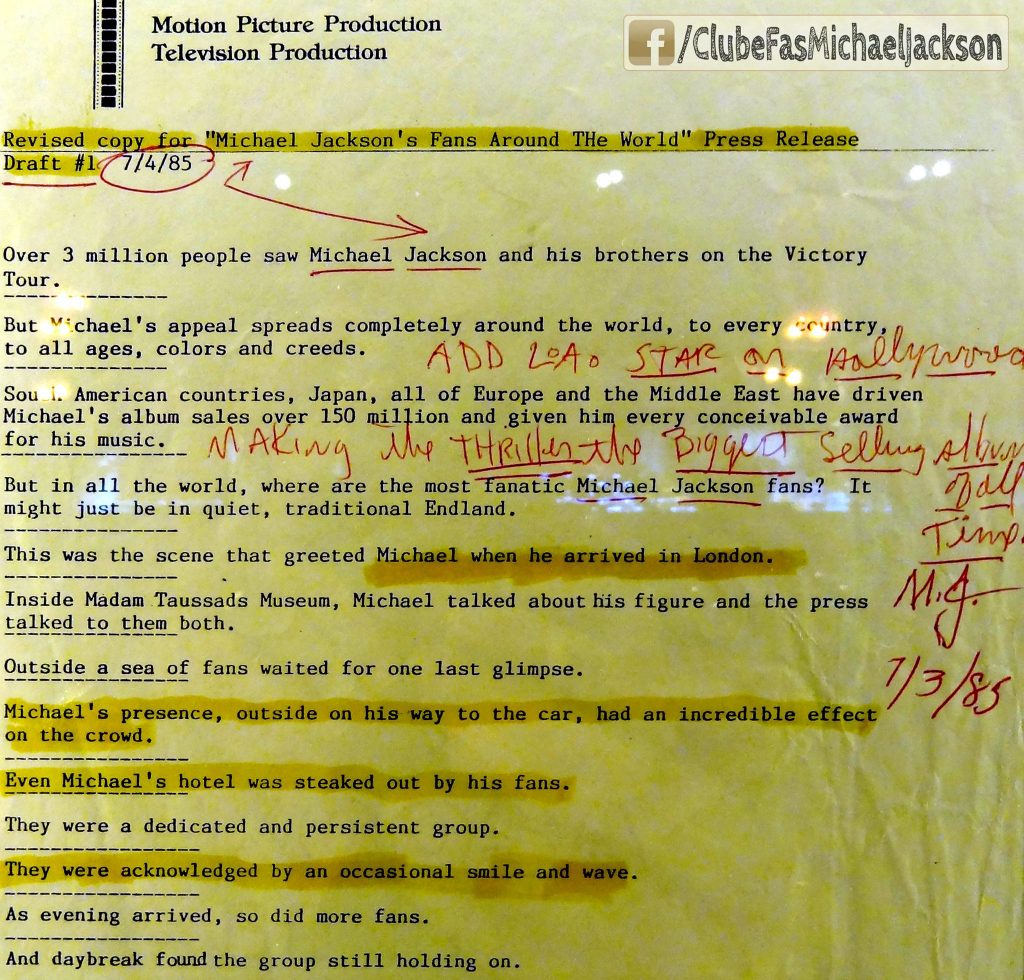 Motion Picture Production
Television Production
f /ClubeFasMichaelJackson
Revised copy for "Michael Jackson's Fans Around THe World" Press Release
Draft #1 7/4/85
Over 3 million people saw Michael Jackson and his brothers on the Victory
Tour.
But Michael's appeal spreads completely around the world, to every country,
to all ages, colors and creeds.
ADD STAR on Hollywood
South American countries, Japan, all of Europe and the Middle East have driven
Michael's album sales over 150 million and given him every conceivable award
for his music.
MAKing The THRilleR the Biggest Selling Album
of all
Time.
But in all the world, where are the most fanatic Michael Jackson fans? It
might just be in quiet, traditional Endland.
This was the scene that greeted Michael when he arrived in London.
M.J.
7/3/85
Inside Madam Taussads Museum, Michael talked about his figure and the press
talked to them both.
Outside a sea of fans waited for one last glimpse.
Michael's presence, outside on his way to the car, had an incredible effect
on the crowd.
Even Michael's hotel was steaked out by his fans.
They were a dedicated and persistent group.
They were acknowledged by an occasional smile and wave.
As evening arrived, so did more fans.
And daybreak found the group still holding on.